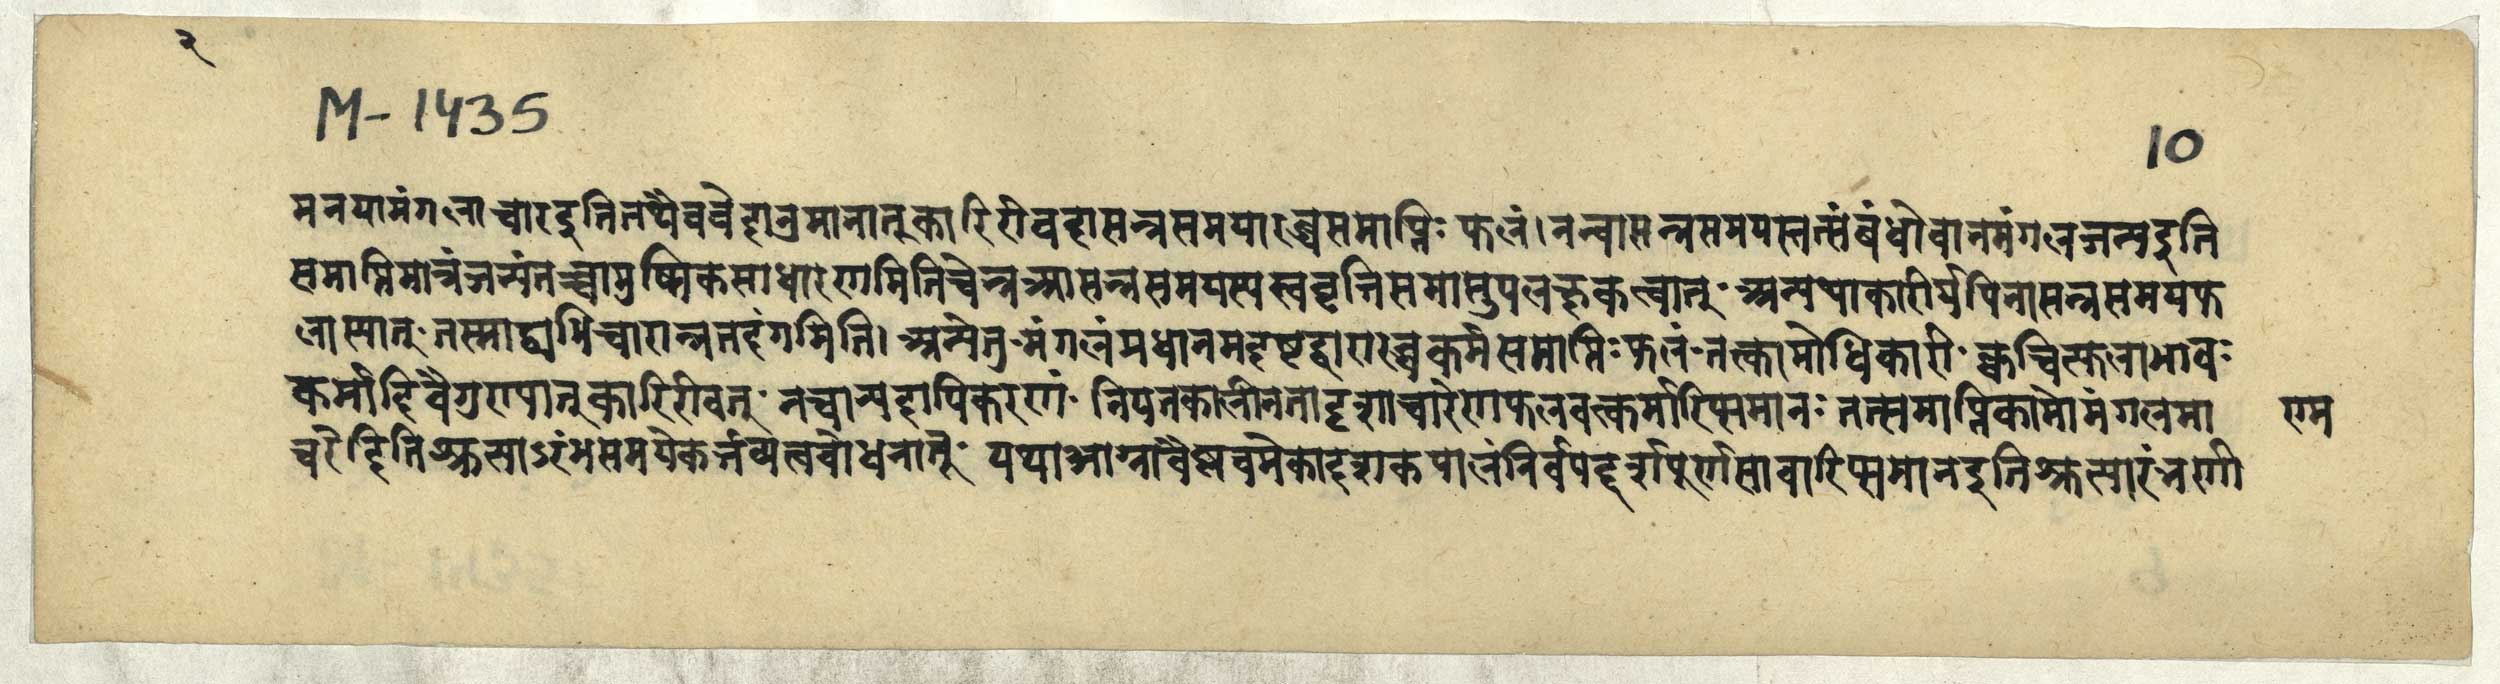 २
M-1435
10
मनयामंगलाचारइतितथैववेदानुमानात्कारिरीवदासन्नसमयारब्धसमाप्तिः फलं। नन्वासन्नसमयस्तत्संबंधोवानमंगलजन्यइति
समाप्तिमात्रंजन्यंतच्चामुष्मिकसाधारणमितिचेन्नआसन्नसमयस्यस्ववृत्तिसमाप्त्युपलक्षकत्वात् अन्यथाकारीर्यपिनासन्नसमयफ
लास्यात् तस्माद्व्यभिचारान्नतदंगमिति। अन्येतु मंगलंप्रधानमदृष्टद्वारारब्धकर्मसमाप्तिः फलं तत्कामोधिकारी क्वचित्फलाभावः
कर्मादिवैगुण्यात्कारिरीवत् नचान्यदापिकरणं नियतकालीनतादृशाचारेणफलवत्कर्मारिप्समानः तत्समाप्तिकामोमंगलमा णम
चरेदितिश्रुत्याऽरंभसमयेकर्तव्यत्वबोधनात् यथाआग्नावैष्णवमेकादशकपालंनिर्वपेद्दर्शपूर्णमासावारिप्समानइतिश्रुत्यारंभणी